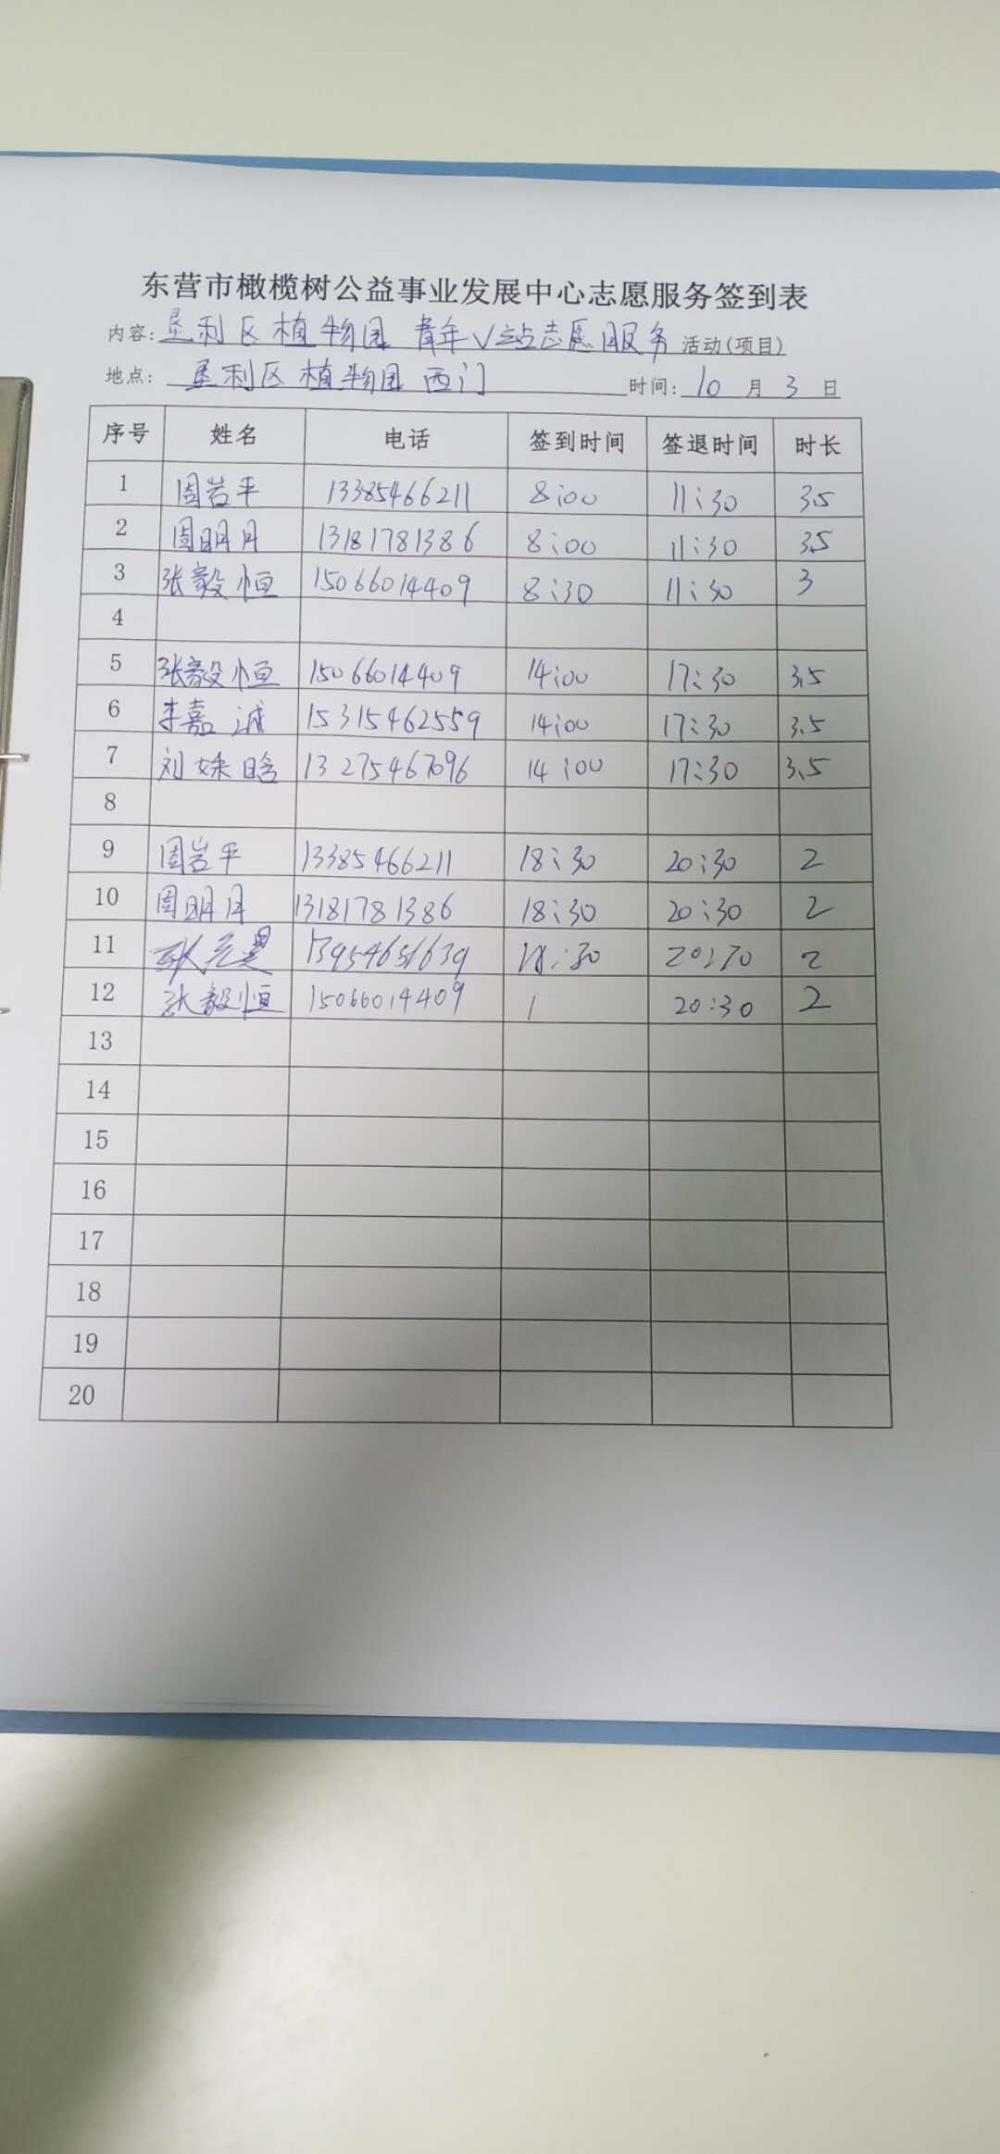 东营市橄榄树公益事业发展中心志愿服务签到表
内容: 垦利区植物园 青年V站志愿服务 活动(项目)
地点: 垦利区植物园西门 时间: 10 月 3 日
序号 姓名 电话 签到时间 签退时间 时长
1 周岩平 13385466211 8:00 11:30 3.5
2 周明月 13181781386 8:00 11:30 3.5
3 张毅恒 15066014409 8:30 11:30 3
4
5 张毅恒 15066014409 14:00 17:30 3.5
6 李嘉诚 15315462559 14:00 17:30 3.5
7 刘姝晗 13275467096 14:00 17:30 3.5
8
9 周岩平 13385466211 18:30 20:30 2
10 周明月 13181781386 18:30 20:30 2
11 18:30 20:30 2
12 张毅恒 15066014409 20:30 2
13
14
15
16
17
18
19
20